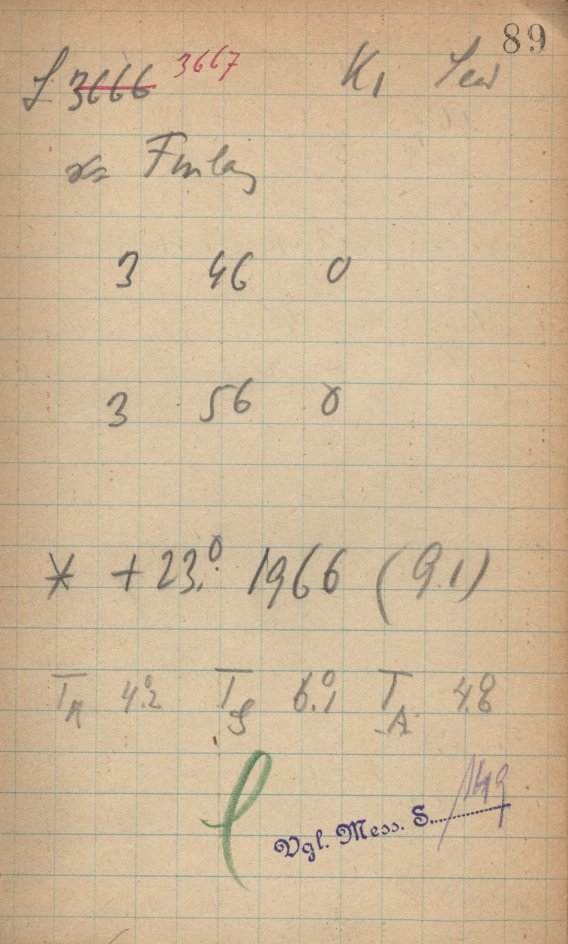 89
L 3666 3667 K1
Finlay
3 46 0
3 56 0
* +23.° 1966 (9.1)
TR 4.°2 TS 6.°1 TA 4.8
Vgl. Mess. S. 149